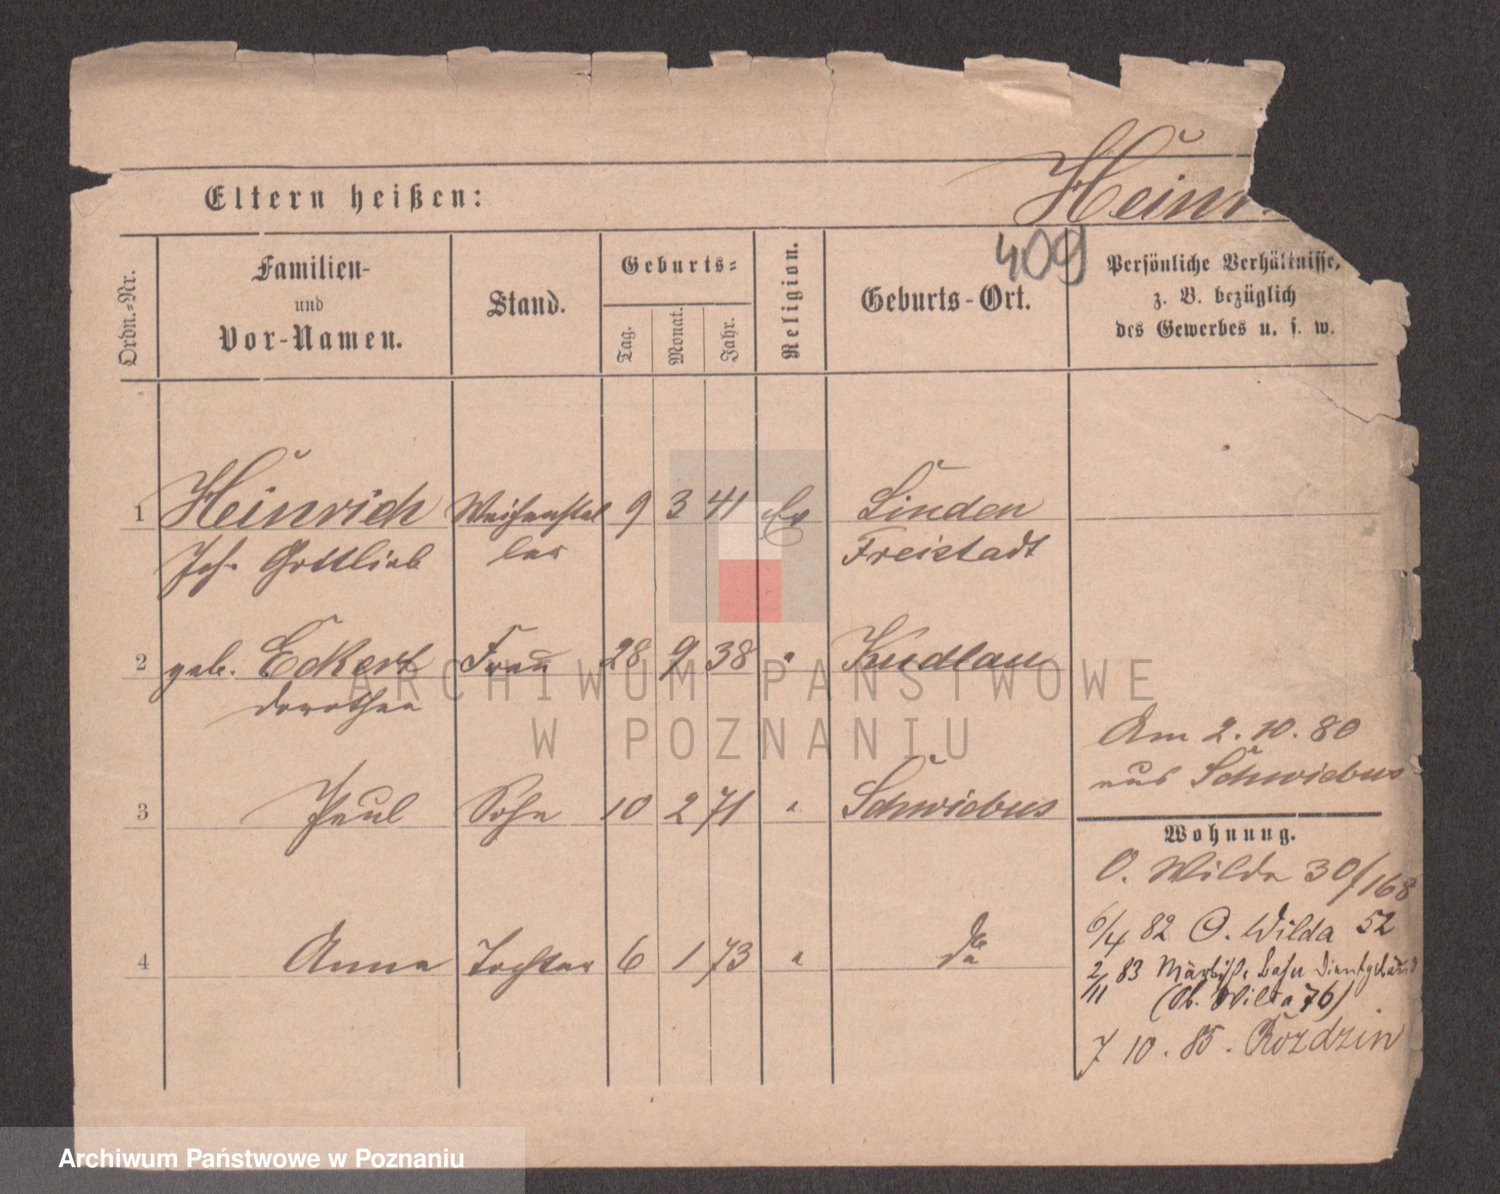 Eltern heißen:
Heinr
409
Ordn.=Nr.
Familien-
und
Vor-Namen.
Stand.
Geburts=
Tag.
Monat.
Jahr.
Religion.
Geburts-Ort.
Persönliche Verhältnisse,
z. B. bezüglich
des Gewerbes u. s. w.
1 Heinrich Weichenstel 9 3 41 Ev Linden
Joh. Gottlieb ler Freistadt
2 geb. Eckert Frau 28 9 38 " Kudlau
Dorothea
Am 2. 10. 80
aus Schwiebus
3 Paul Sohn 10 2 71 " Schwiebus
Wohnung.
O. Wilda 30/168
6/4 82 O. Wilda 52
4 Anna Tochter 6 1 73 " da
2/11 83 Märkische Bahn Dienstgebäud
(O. Wilda 76)
7 10. 85. Rozdzin
ARCHIWUM PAŃSTWOWE
W POZNANIU
Archiwum Państwowe w Poznaniu